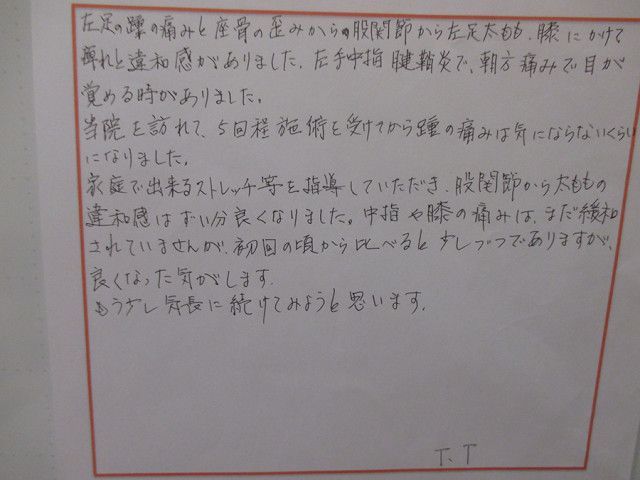 左足の踵の痛みと座骨の歪みからの股関節から左足太もも、膝にかけて
痺れと違和感がありました。左手中指腱鞘炎で、朝方痛みで目が
覚める時がありました。
当院を訪れて、5回程施術を受けてから踵の痛みは気にならないくらい
になりました。
家庭で出来るストレッチ等を指導していただき、股関節から太ももの
違和感はずい分良くなりました。中指や膝の痛みは、まだ緩和
されていませんが、初回の頃から比べると少しづつでありますが、
良くなった気がします。
もう少し気長に続けてみようと思います。
T.T